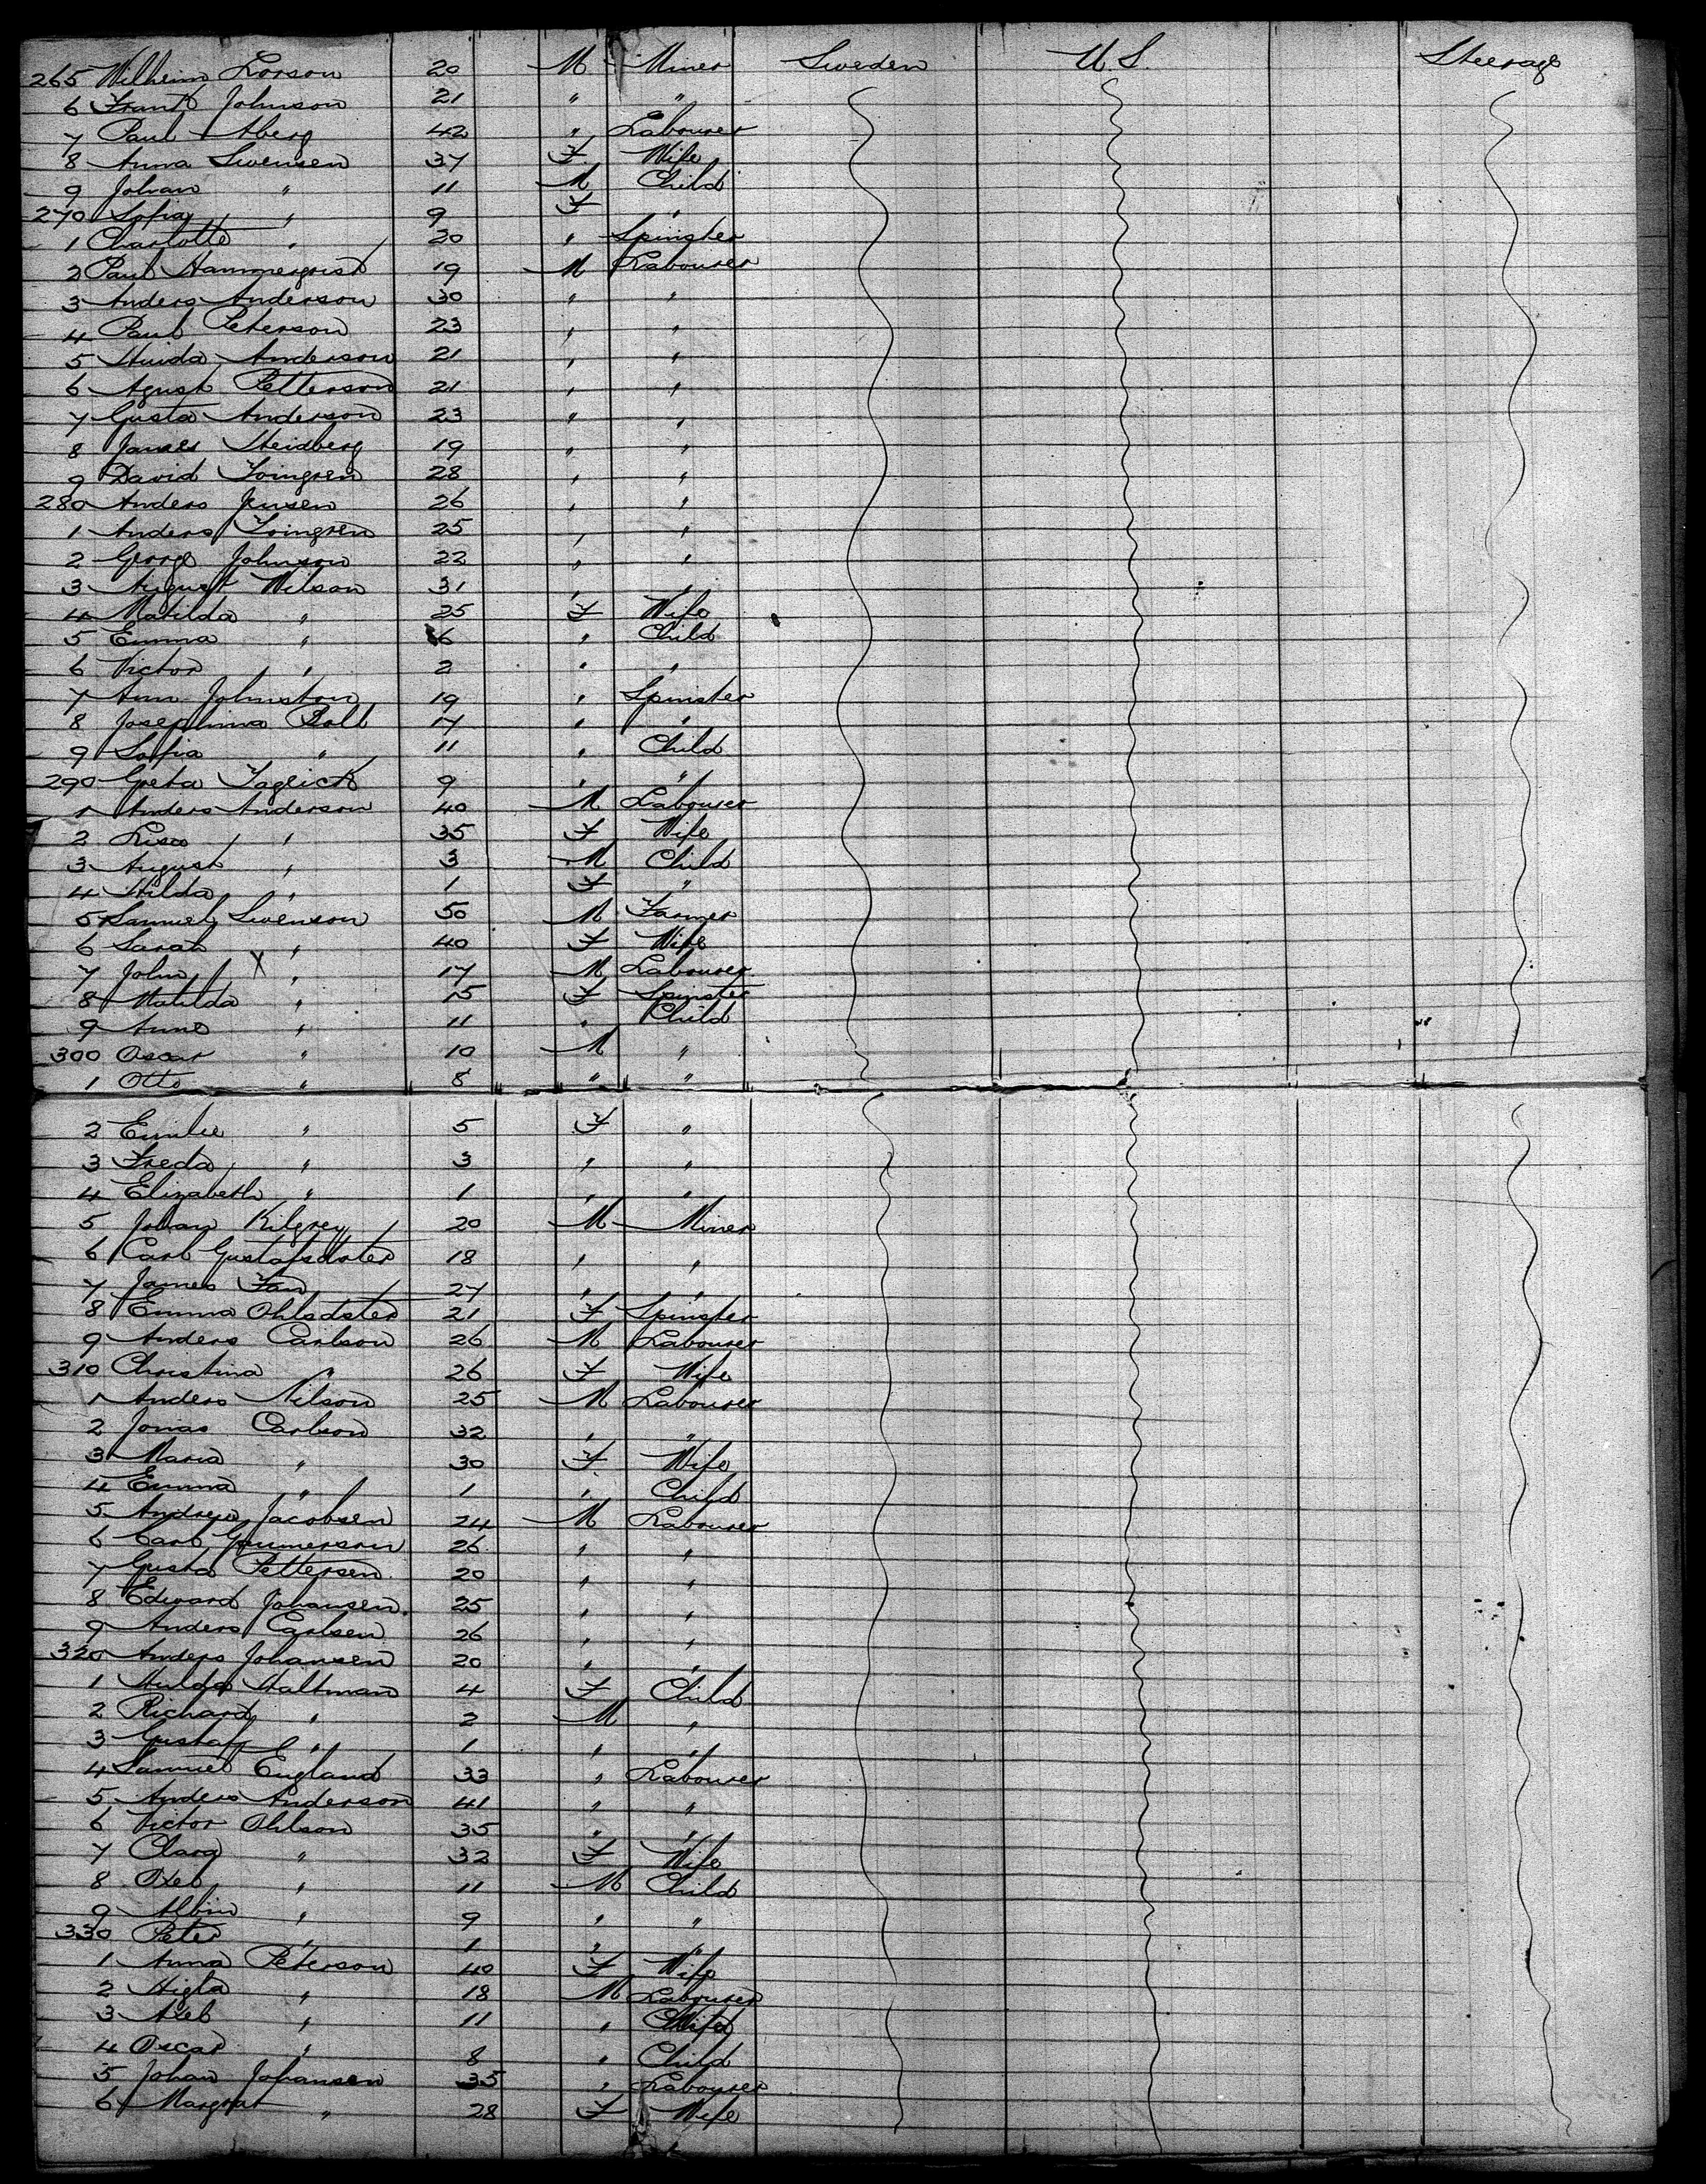 265 Wilheim Larson 20 M Miner Sweden U S. Steerage
6 Frank Johnson 21 " "
7 Paul Aberg 42 " Labourer
8 Anna Swensen 37 F Wife
9 Johan " 11 M Child
270 Sofia " 9 F "
1 Charlotte " 20 " Spinster
2 Paul Hammerqvist 19 M Labourer
3 Anders Anderson 30 " "
4 Paul Peterson 23 " "
5 Anderson 21 " "
6 Agust Petterson 21 " "
7 Gusta Anderson 23 " "
8 James Steidberg 19 " "
9 David 28 " "
280 Anders Jensen 26 " "
1 Anders 25 " "
2 George Johnson 22 " "
3 August Wilson 31 " "
4 Matilda " 25 F Wife
5 Emma " 6 " Child
6 Victor " 2 " "
7 Ann Johnston 19 " Spinster
8 Josephina 17 " "
9 Sofia " 11 " Child
290 Greta 9 " "
1 Anders Anderson 40 M Labourer
2 Lisa " 35 F Wife
3 August " 3 M Child
4 Hilda " 1 F "
5 Samuel Swenson 50 M Farmer
6 Sarah " 40 F Wife
7 John X " 17 M Labourer
8 Matilda " 15 F Spinster
9 Anna " 11 " Child
300 Oscar " 10 M "
1 Otto " 8 " "
2 Emilie " 5 F "
3 Freda " 3 " "
4 Elizabeth " 1 " "
5 Johan Kilgrey 20 M Miner
6 Carl Gustafsdoter 18 " "
7 James 27 " "
8 Emma Ohlsdster 21 F Spinster
9 Anders Carlson 26 M Labourer
310 Christina " 26 F Wife
1 Anders Nilson 25 M Labourer
2 Jonas Carlson 32 " "
3 Maria " 30 F Wife
4 Emma " 1 " Child
5 Andreas Jacobsen 24 M Labourer
6 Carl Gunnerson 26 " "
7 Gusta Pettersen 20 " "
8 Edward Johansen 25 " "
9 Anders Carlsen 26 " "
320 Anders Johansen 20 " "
1 Hulda Haltman 4 F Child
2 Richard " 2 M "
3 Gustaff " 1 " "
4 Samuel England 33 " Labourer
5 Anders Anderson 41 " "
6 Victor Ohlson 35 " "
7 Clara " 32 F Wife
8 Axel " 11 M Child
9 Albin " 9 " "
330 Peter " 1 " "
1 Anna Peterson 40 F Wife
2 " 18 M Labourer
3 Axel " 11 "
4 Oscar " 8 " Child
5 Johan Johansen 35 " Labourer
6 Margrat " 28 F Wife